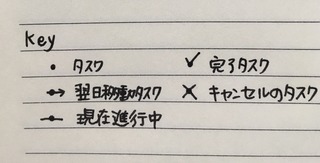 Key
• タスク ✓ 完了タスク
•→ 翌日移動タスク × キャンセルのタスク
•– 現在進行中